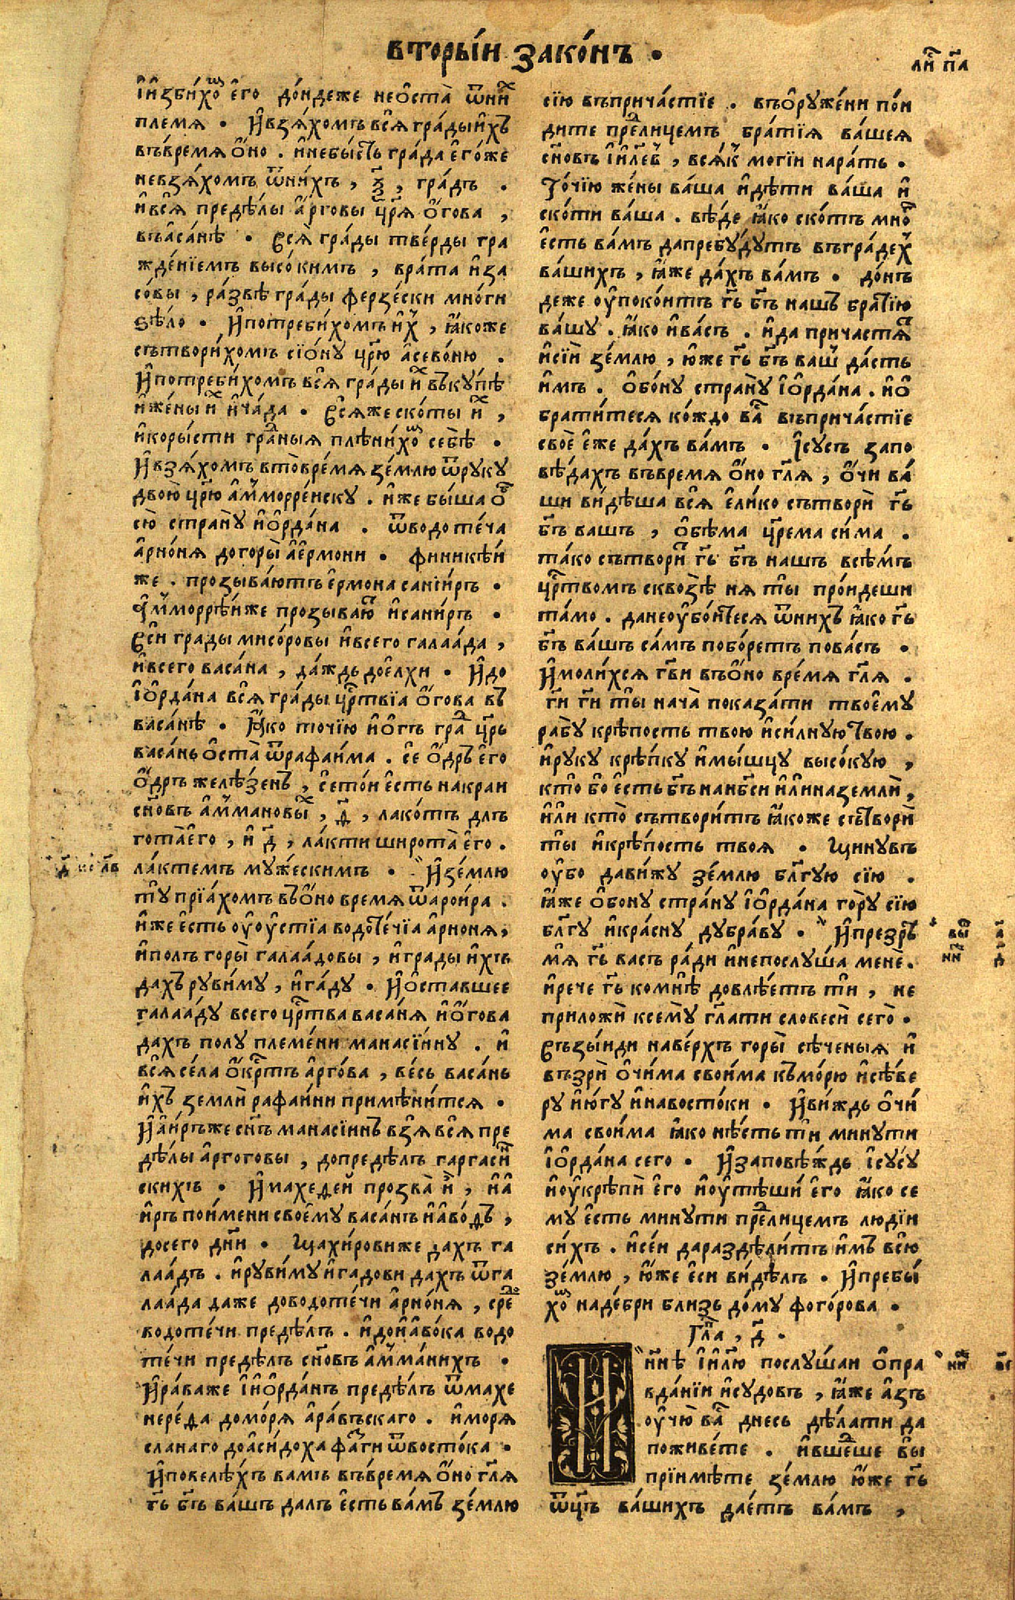 вторы́и зако́нъ .
ли҃ п҃а
И҆и҆збихо́ⷨ е҆го̀ до́ндеже неѡ҆ста̀ ѿни́ⷯ
племѧ . И҆взѧ́хомъ всѧ̀ гра́ды и҆́хъ
въвре́мѧ о҆́но . и҆небы́сть гра́да е҆го́же
невзѧ́хомъ ѿни́хъ , ѯ҃ , гра́дъ .
и҆всѧ̀ преде́лы а҆́рговы цр҃ѧ̀ о҆́гова ,
въваса́нѣ . Всѧ̀ гра́ды тве́рды гра
жде́нїемъ высо́кимъ , врата̀ и҆за
со́вы , ра́звѣ гра́ды ферзе́ски мно́ги
ѕѣло̀ . И҆потреби́хомъ и҆́хⷯ , ꙗ҆́коже
сътвори́хомъ сїѡ́ну цр҃ю̀ а҆сево́ню .
И҆потреби́хомъ всѧ̀ гра́ды и҆́ⷯ въку́пѣ
и҆же́ны и҆́ⷯ и҆ча́да . Всѧ́же ско́ты и҆́ⷯ ,
и҆коры́сти гра́ⷣныѧ плѣни́хоⷨ себѣ̀ .
И҆взѧ́хомъ вто̀вре́мѧ зе́млю ѿруку̀
двою̀ цр҃ю̀ а҆мморре́иску . и҆́же бы́ша о҆б̾
сю̀ страну̀ и҆ѻ҆рда́на . ѿводоте́ча
а҆рно́нѧ догоры̀ а҆е҆рмони . финикѣ́и
же . прозыва́ютъ е҆рмо́на сани́иръ .
А҆мморрѣ́иже прозыва́юⷮ и҆сани́ръ .
Вси̑ гра́ды мисо́ровы и҆всего̀ галаа́да ,
и҆всего̀ васа́на , да́ждь дое҆лхи . И҆до
і҆ѻ҆рда́на всѧ̀ гра́ды цр҃твїѧ о҆́гова въ
васа́нѣ . Ꙗ҆́ко то́чїю и҆о҆́гъ гра́ⷣ цр҃ь
васа́нь ѡ҆ста̀ ѿрафаи́ма . сѐ о҆́дръ е҆го̀
о҆́дръ желѣ́зенъ , се́ то́и е҆́сть накраи
сн҃овъ а҆мма́новы́ⷯ , д҃ , ла́котъ дль
гота̀е҆го̀ , и҆ д҃ , ла́кти широта̀ е҆го̀ .
ла́ктемъ му́жескимъ . И҆зе́млю
тꙋ̀ прїѧ́хомъ въо҆́но вре́мѧ ѿарои́ра .
и҆́же е҆́сть оу҆оу҆́стїа водоте́чїа а҆рно́нѧ ,
и҆по́лъ горы̀ галаа́довы , и҆гра́ды и҆́хъ
да́хъ руви́му , и҆га́ду . И҆ѡ҆ста́вшее
галаа́ду всего̀ цр҃тва васа́нѧ и҆о҆́гова
да́хъ полу̀ племе́ни манасїи́ну . и҆
всѧ̀ се́ла о҆́крⷭ҇тъ а҆рго́ва , ве́сь васа́нь
и҆́хъ землѧ̀ рафаи́ни примѣни́тсѧ .
И҆а҆и́ръже сн҃ъ манасїинъ взѧ̀ всѧ̀ пре
де́лы а҆рго́говы , допреде́лъ гаргаси́ⷩ
скихъ . И҆махеде́и прозва̀ и҆́ⷯ , и҆а҆
и́ръ пои́мени своему̀ васа́нъ и҆а҆во́дъ ,
досего̀ дн҃и . Щахи́ровиже да́хъ га
лаа́дъ . и҆руви́му и҆га́дови да́хъ ѿга
лаа́да да́же доводоте́чи а҆рно́нѧ , сре́ⷣ
водоте́чи преде́лъ . и҆дои҆а҆во́ка водо
те́чи преде́лъ сн҃овъ а҆мма́нихъ .
И҆ра́важе і҆и҆ѻ҆рда́нъ преде́лъ ѿмахе
нере́да домо́рѧ а҆ра́въскаго . и҆мо́рѧ
сла́наго доа҆си́доха фа́зги ѿвосто́ка .
И҆повелѣ́хъ ва́мъ въвре́мѧ о҆́но гл҃ѧ
гь҃ бг҃ъ ва́шъ да́лъ е҆́сть ва́мъ зе́млю
сїю̀ въприча́стїе . въѡ҆руже́ни пои
ди́те преⷣлице́мъ бра́тїѧ ва́шеѧ
сн҃овъ і҆и҃левⷯ , всѧ́кⷦ моги́и нара́ть .
То́чїю же́ны ва́ша и҆дѣ́ти ва́ша и҆
ско́ти ва́ша . вѣ́де ꙗ҆́ко ско́тъ мно́ⷢ
е҆́сть ва́мъ дапребу́дутъ въгра́дехⷯ
ва́шихъ , ꙗ҆́же да́хъ ва́мъ . донъ
деже оу҆поко́итъ гь҃ бг҃ъ на́шъ бра́тїю
ва́шу . ꙗ҆́ко и҆ва́съ . и҆да прича́стѧⷮ
и҆сїи́ зе́млю , ю҆́же гь҃ бг҃ъ ва́шⷲ да́сть
и҆́мъ . ѡ҆бо́ну страну̀ і҆ѻ҆рда́на . и҆о҆
брати́тесѧ ко́ждо ва́ⷭ въприча́стїе
своѐ е҆́же да́хъ ва́мъ . І҆су́съ запо
вѣ́дахъ въвре́мѧ о҆́но гл҃ѧ , о҆́чи ва́
ши ви́дѣша всѧ̀ е҆ли́ко сътворѝ гь҃
бг҃ъ ва́шъ , ѡ҆бѣ́ма цр҃ема си́ма .
та́ко сътвори́ⷮ гь҃ бг҃ъ на́шъ всѣ́мъ
цр҃твомъ сквозѣ̀ нѧ ты̀ про́идеши
та́мо . данеоу҆бо́итесѧ ѿни́хъ ꙗ҆́ко гь҃
бг҃ъ ва́шъ са́мъ побо́ретъ пова́съ .
И҆моли́хсѧ гв҃и въо҆́но вре́мѧ гл҃ѧ .
ги҃ ги҃ ты̀ нача̀ показа́ти твоему̀
рабу̀ крѣ́пость твою̀ и҆си́лну твою̀ .
и҆руку̀ крѣ́пку и҆мы́шцу высо́кую ,
кто̀ бо е҆́сть бг҃ъ нанб҃си и҆лѝ наземлѝ ,
и҆лѝ кто̀ сътвори́тъ ꙗ҆́коже сътворѝ
ты̀ и҆крѣ́пость твоѧ̀ . Щинувъ
оу҆́бо дави́жу зе́млю бл҃гую сїю̀ .
ꙗ҆́же ѡ҆бо́ну страну̀ і҆ѻ҆рда́на го́ру сїю̀
бл҃гу и҆кра́сну дубра́ву . И҆презрѣ̀
мѧ̀ гь҃ ва́съ ра́ди и҆непослу́ша менѐ .
и҆речѐ гь҃ комнѣ̀ довлѣ́етъ тѝ , не
приложѝ ксему̀ гл҃ати словесѝ сего̀ .
Възы́иди наве́рхъ горы̀ сѣ́ченыѧ и҆
въззрѝ о҆чи́ма свои́ма къмо́рю и҆сѣ́ве
ру и҆ю҆́гу и҆навосто́ки . И҆ви́ждь о҆чи́
ма свои́ма ꙗ҆́ко нѣ́сть тѝ мину́ти
і҆ѻ҆рда́на сего̀ . И҆заповѣ́ждь і҆су́су
и҆оу҆крѣпѝ е҆го̀ и҆оу҆тѣ́ши е҆го̀ ꙗ҆́ко се
му̀ е҆́сть мину́ти преⷣлице́мъ люді́и
си́хъ . и҆се́и дараздѣли́тъ и҆́мъ всю̀
зе́млю , ю҆́же е҆сѝ ви́дѣлъ . И҆пребы́
хоⷨ наде́бри бли́зь до́му фого́рова .
Гл҃а , д҃ .
И҆н҃нѣ і҆и҃лю послу́шаи ѡ҆пра
вда́нїи и҆судо́въ , ꙗ҆́же а҆́зъ
оу҆чю̀ ва́ⷭ дне́сь дѣ́лати да
поживе́те . и҆вше́ⷣше вы̀
прїимѣ́те зе́млю ю҆́же гь҃
ѿц҃ъ ва́шихъ дае́тъ ва́мъ ,